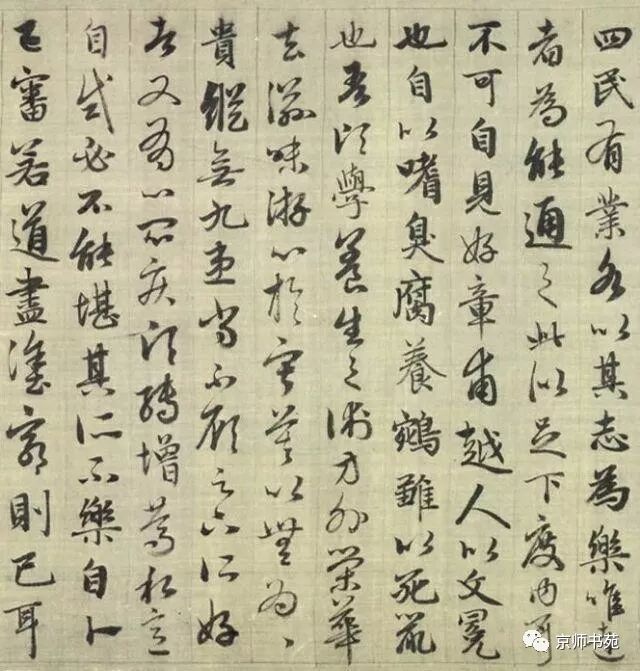 四民有業各以其志為樂唯達
者為能通之此似足下度內耳
不可自見好章甫越人以文冕
也自以嗜臭腐養鵷雛以死鼠
也吾頃學養生之術方外榮華
去滋味游心於寂莫以無為、
貴縱無九患尚不顧足下所好
者又有心悶疾頃轉增篤私意
自試必不能堪其所不樂自卜
已審若道盡塗窮則已耳
京师书苑